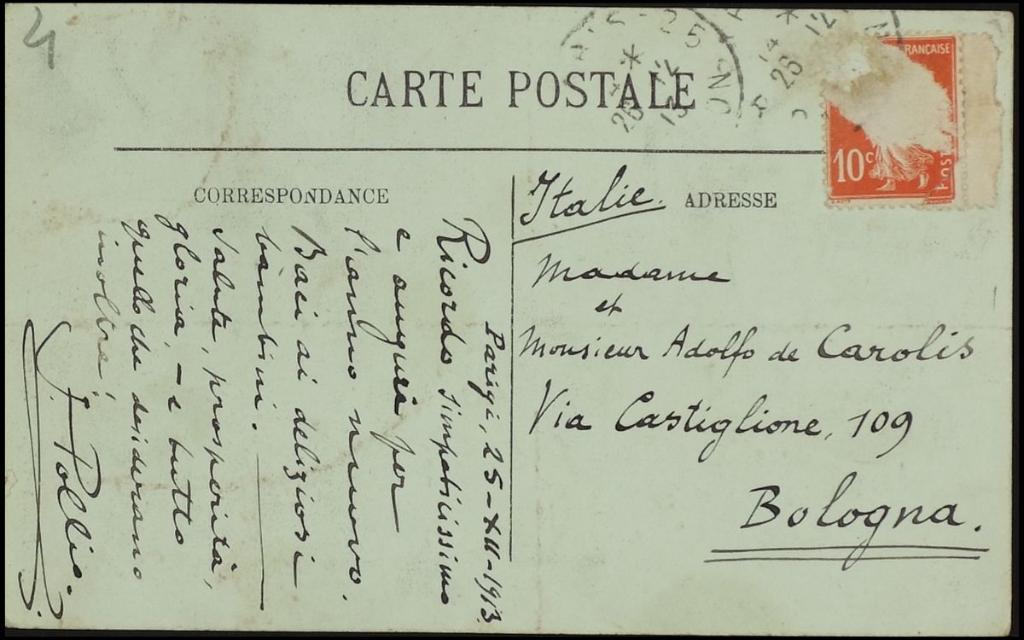 4
CARTE POSTALE
25
26 12
13
26 12
FRANÇAISE
10c
POSTES
CORRESPONDANCE
ADRESSE
Italie.
Madame
et
Monsieur Adolfo de Carolis
Via Castiglione, 109
Bologna.
Parigi, 25-XII-1913.
Ricordo simpaticissimo
e auguri per
l'anno nuovo.
Baci ai deliziosi
bambini.
Salute, prosperità,
gloria, - e tutto
quello che desiderano
inoltre!
Pollio.